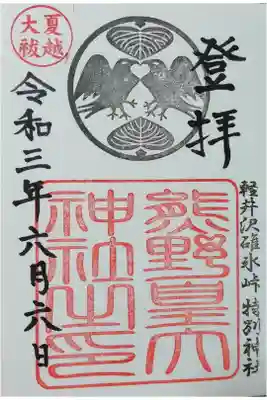 軽井沢碓氷峠 特別神社
登拝
熊野皇大
神社之印
夏越
大祓
令和三年六月六日